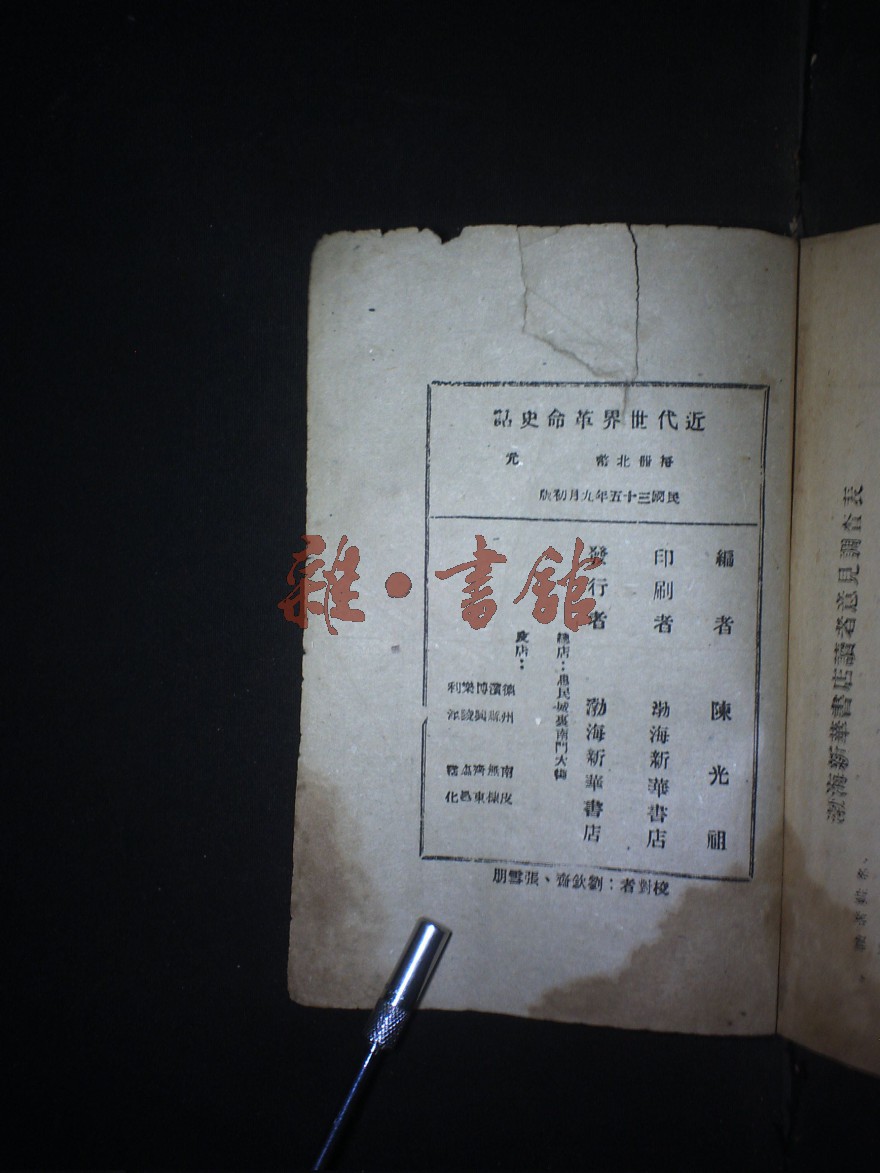 近代世界革命史話
每冊北幣　元
民國三十五年九月初版
編者　陳光祖
印刷者　渤海新華書店
發行者　渤海新華書店
總店：惠民城裏南門大街
支店：
德州 濱縣 博興 樂陵 利津
南皮 無棣 齊東 霑化
校對者：劉欽齋、張雪朋
渤海新華書店讀者意見調查表
雜·書館